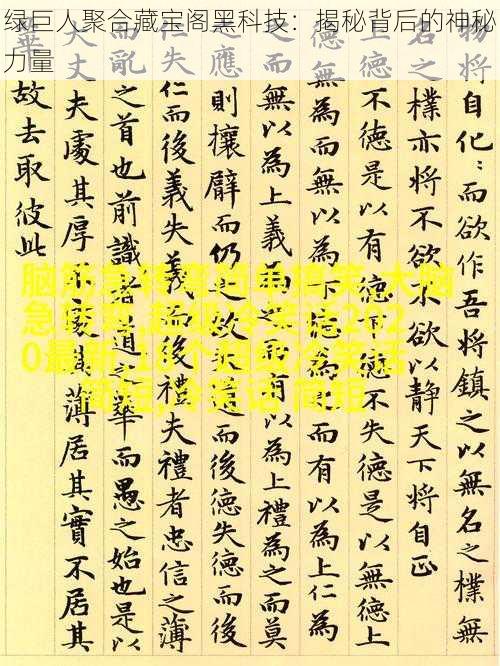 绿巨人聚合藏宝阁黑科技：揭秘背后的神秘
力量
物将自化：而欲作吾将鎮之以無名之樸無
名之樸亦将不欲不欲以静天下将自正
不德是以有德下德不失德是以無德上
德無為而無以為下德為之而有以為上仁為
之而無以為上義為之而有以為上禮為之而莫
之應則攘臂而仍之故失道而後德失德而後
仁而後義失義而後禮夫禮者忠信之薄
而亂之首也前識者道之華而愚之始也是以
大丈夫處其厚不處其薄居其實不居其
華故去取彼此
脑筋急转弯简单搞笑,大脑
急转弯,超级冷笑话202
0最新,10个超级冷笑话
简短,冷笑话 简短